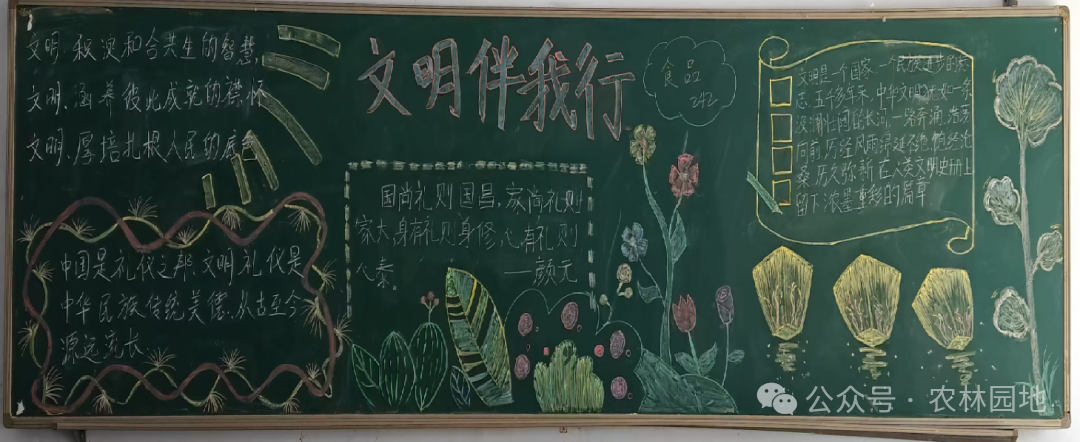 文明,积淀和合共生的智慧
文明、涵养彼此成就的襟怀
文明、厚培扎根人民的底色
中国是礼仪之邦,文明礼仪是
中华民族传统美德,从古至今
源远流长
文明伴我行
食品
242
国尚礼则国昌,家尚礼则
家大,身有礼则身修,心有礼则
心泰。 ——颜元
文明是一个国家一个民族进步的标
志,五千多年来,中华文明犹如一条
波澜壮阔的长河,一路奔涌,浩荡
向前,历经风雨绵延不绝,饱经沧
桑,历久弥新,在人类文明史册上
留下浓墨重彩的篇章
公众号·农林园地